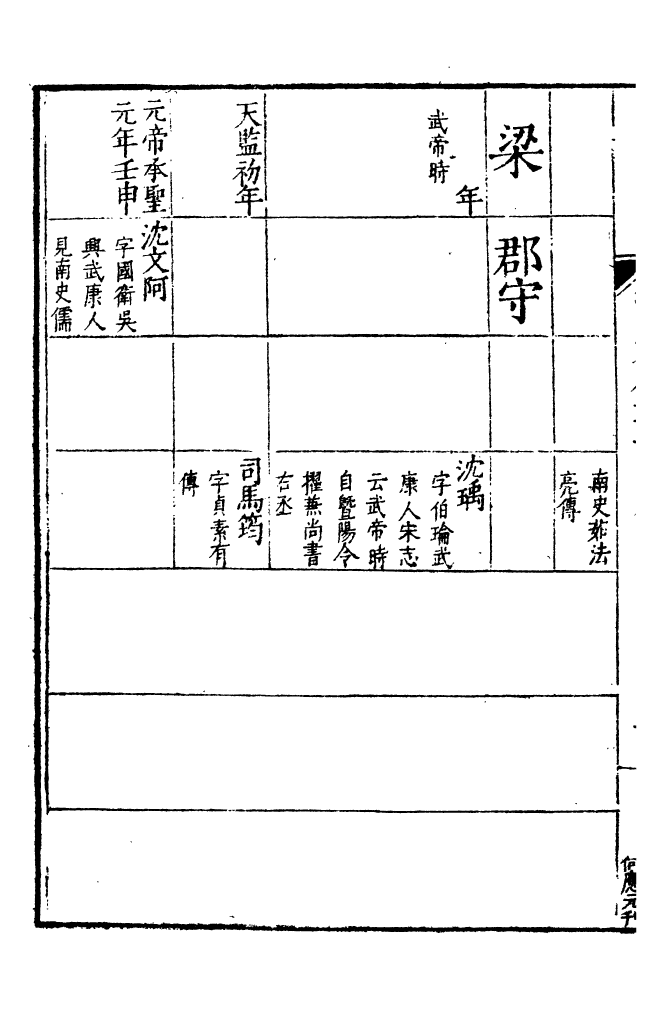 南史茹法
亮傳
梁
郡守
年
武帝時
沈瑀
字伯瑜武
康人宋志
云武帝時
自暨陽令
擢兼尚書
右丞
天監初年
司馬筠
字貞素有
傳
元帝承聖
元年壬申
沈文阿
字國衛吳
興武康人
見南史儒
何應元刊